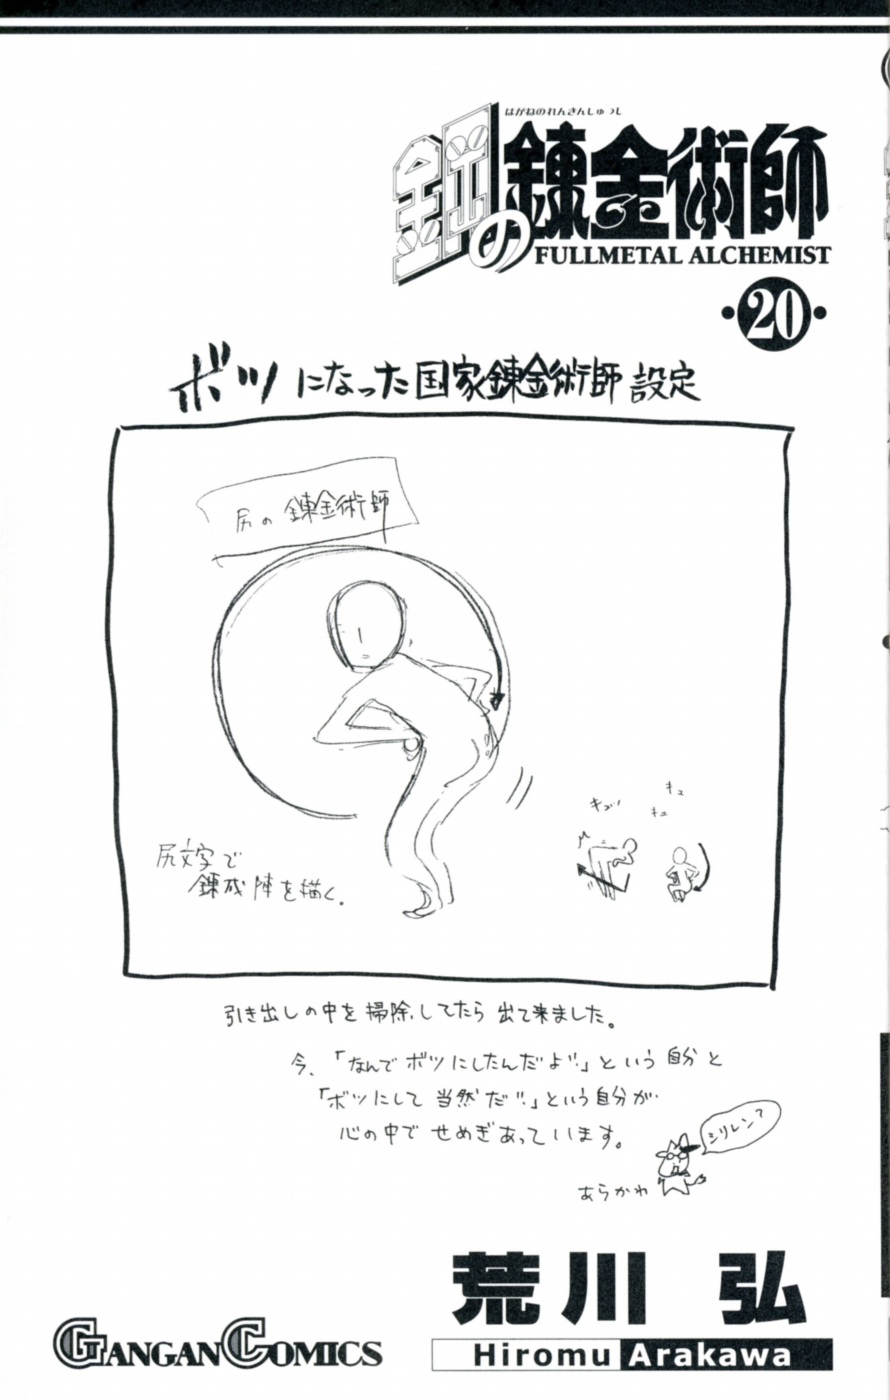 はがねのれんきんじゅつし
鋼の錬金術師
FULLMETAL ALCHEMIST
・20・
ボツになった国家錬金術師設定
尻の錬金術師
キュ
キュ
尻文字で
錬成陣を描く。
引き出しの中を掃除してたら出て来ました。
今、「なんでボツにしたんだよ!!」という自分と
「ボツにして当然だ!!」という自分が
心の中でせめぎあっています。
シリレン?
あらかわ
荒川 弘
Hiromu Arakawa
GANGAN COMICS